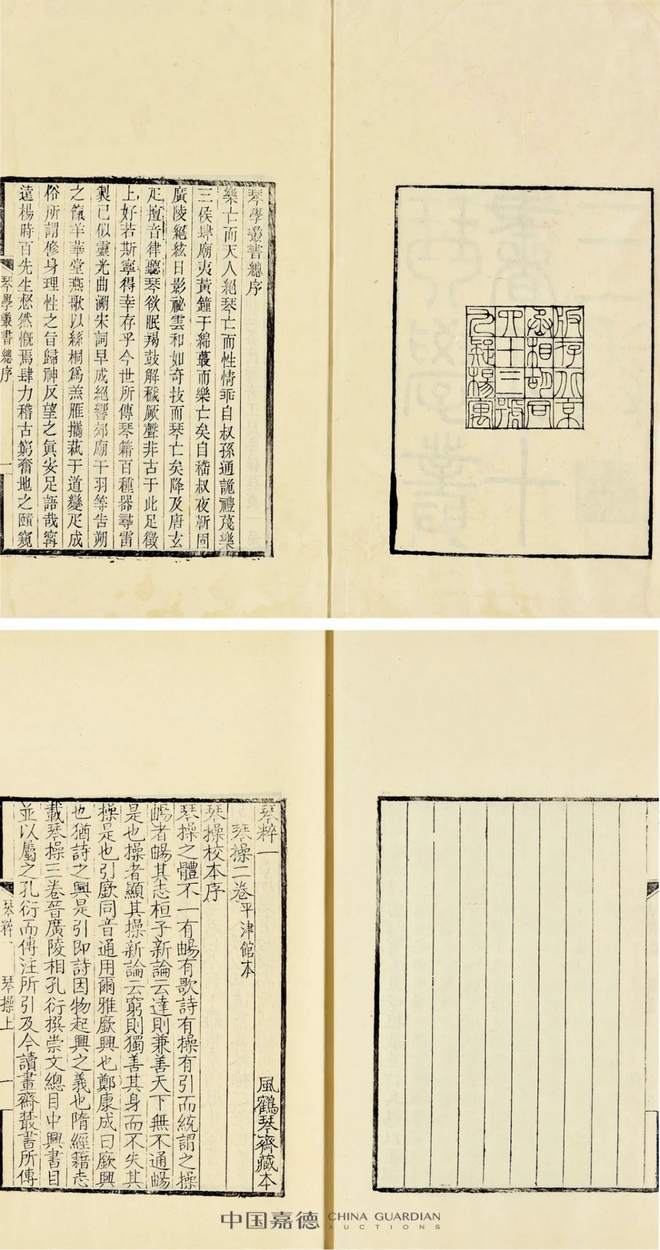 版存北京
丞相胡同
六十三號
九疑楊寓
琴學叢書總序
樂亡而天人絕琴亡而性情乖自叔孫通詭禮蔑樂
三侯肆廟夷黃鐘于綿蕞而樂亡矣自嵇叔夜靳固
廣陵絕絃日影祕雲和如奇技而琴亡矣降及唐玄
疋擅音律聽琴欲眠羯鼓解穢厥聲非古于此足徵
上好若斯寧得幸存乎今世所傳琴籍百種器尋雷
製已似靈光曲溯宋詞早成絕響郊廟干羽等告朔
之餼羊華堂燕歌以絲桐為羔雁攜萟于道變疋成
俗所謂修身理性之旨歸神反望之眞安足語哉寗
遠楊時百先生惄然慨焉肆力稽古窮奮地之賾窺
琴學叢書總序
琴粹一
風鶴琴齋藏本
琴操二卷平津館本
琴操校本序
琴操之體不一有暢有歌詩有操有引而統謂之操
暢者暢其志桓子新論云達則兼善天下無不通暢
是也操者顯其操新論云窮則獨善其身而不失其
操是也引廞同音通用爾雅廞興也鄭康成曰廞興
也猶詩之興是引即詩因物起興之義也隋經籍志
載琴操三卷晉廣陵相孔衍撰崇文總目中興書目
並以屬之孔衍而傳注所引及今讀畫齋叢書所傳
琴粹一
琴操上
中国嘉德
CHINA GUARDIAN
AUCTIONS